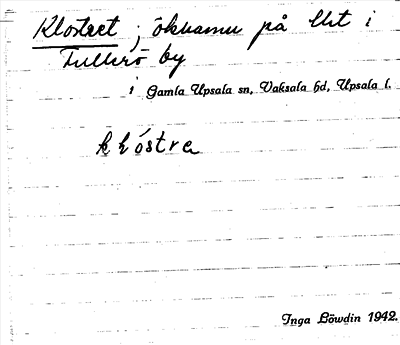 Klostret ; öknamn på lht i
Fullerö by
i Gamla Upsala sn, Vaksala hd, Upsala l.
Inga Löwdin 1942.